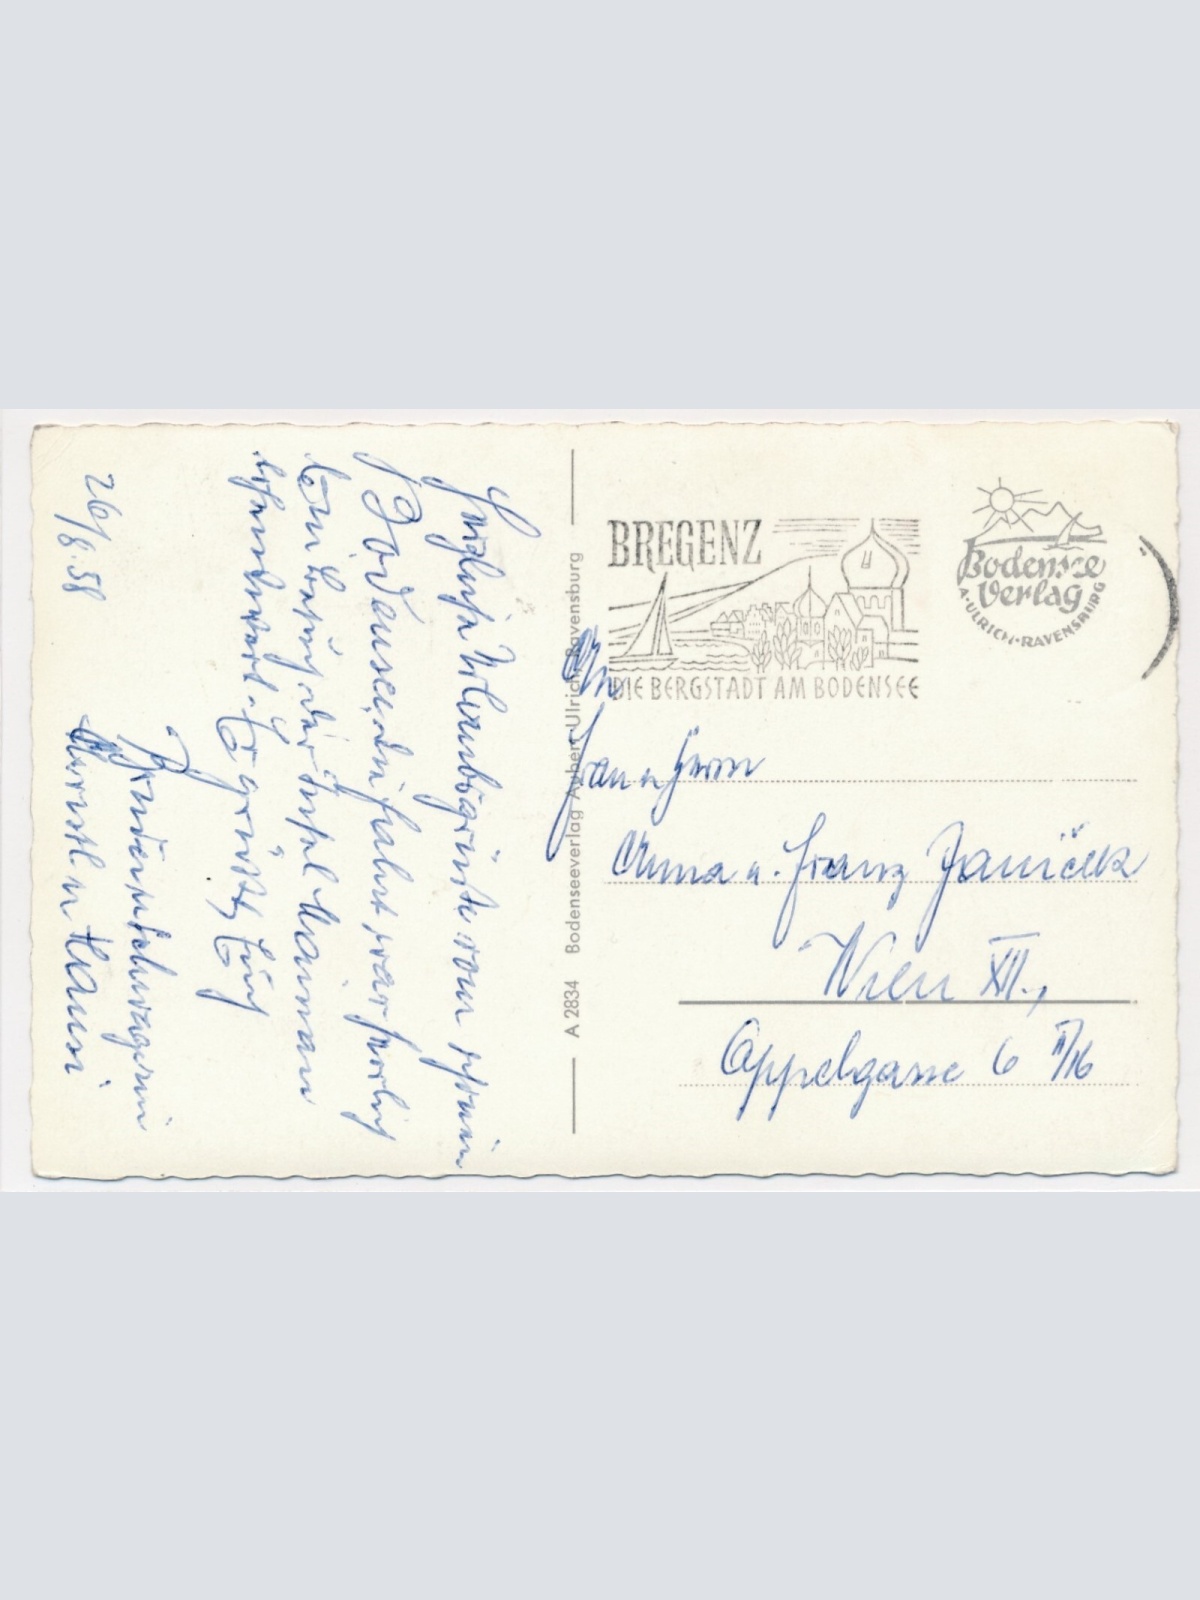 26/8.58
Herzliche Urlaubsgrüße vom schönen
Bodensee, die Fahrt war herrlich
ein Besuch der Insel Mainau
sehenswert. Es grüßt Euch
Bruder u. Schwägerin
u. Hansi
A 2834 Bodenseeverlag Ulrich, Ravensburg
BREGENZ
DIE BERGSTADT AM BODENSEE
Bodensee
Verlag
A. ULRICH · RAVENSBURG
An
Frau u Herrn
Anna u. Franz Janicek
Wien XII.,
Oppelgasse 6 II/16